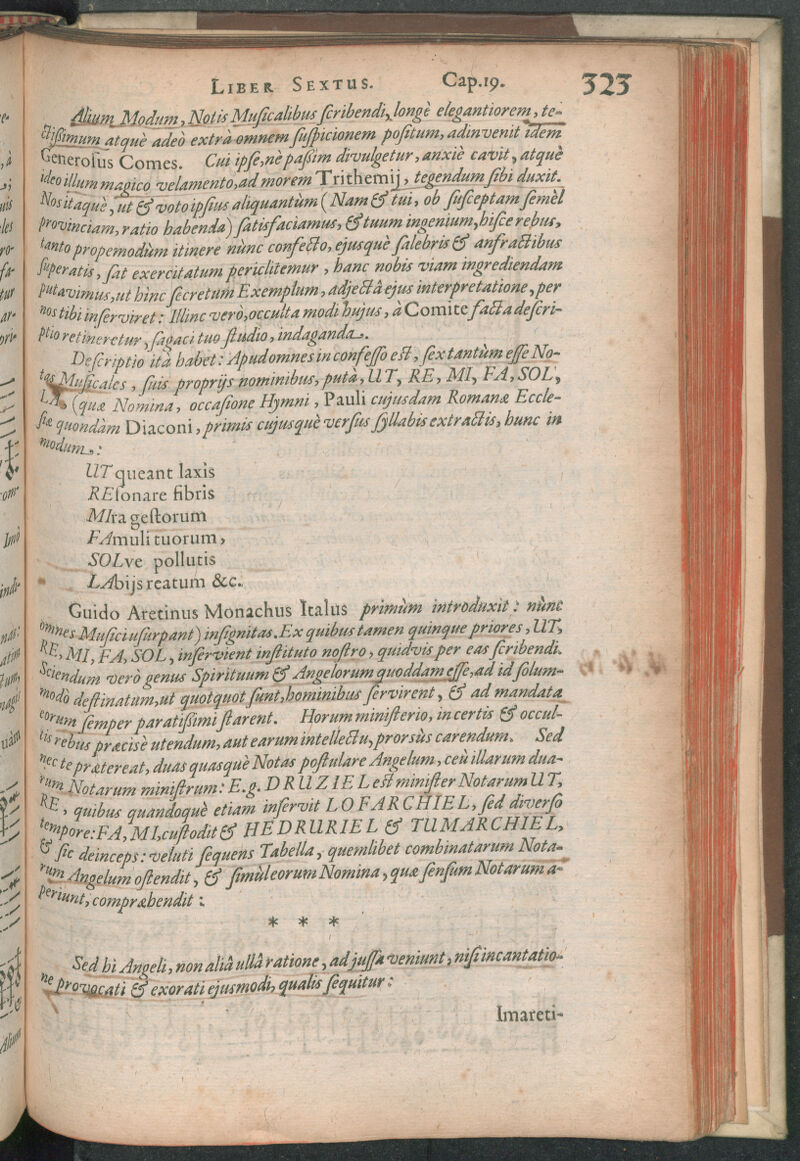 LIBER SEXTUS. Cap.19. 323
Alium Modum, Notis Musicalibus scribendi, longè elegantiorem, te-
ctissimum atquè adeò extrà omnem suspicionem positum, adinvenit idem
Generosus Comes. Cui ipse, nè passim divulgetur, anxiè cavit, atquè
ideo illum magico velamento, ad morem Trithemij, tegendum sibi duxit.
Nos itaquè, ut & voto ipsius aliquantùm (Nam & tui, ob susceptam semèl
provinciam, ratio habenda) satisfaciamus, & tuum ingenium, hisce rebus,
tanto propemodùm itinere nunc confecto, ejusquè salebris & anfractibus
superatis, sat exercitatum periclitemur, hanc nobis viam ingrediendam
putavimus, ut hinc secretum Exemplum, adjectâ ejus interpretatione, per
nos tibi inserviret: Illinc verò, occulta modi hujus, à Comite facta descri-
ptio retineretur, sagaci tuo studio, indaganda.
Descriptio ità habet: Apud omnes in confesso est, sex tantùm esse No-
tas Musicales, suis proprijs nominibus, putà, UT, RE, MI, FA, SOL,
LA, (quæ Nomina, occasione Hymni, Pauli cujusdam Romanæ Eccle-
siæ quondàm Diaconi, primis cujusquè versus syllabis extractis, hunc in
modum:
UT queant laxis
REsonare fibris
MIra gestorum
FAmuli tuorum,
SOLve pollutis
LAbijs reatum &c.
Guido Aretinus Monachus Italus primùm introduxit: nunc
omnes Musici usurpant) insignitas. Ex quibus tamen quinque priores, UT,
RE, MI, FA, SOL, inservient instituto nostro, quidvis per eas scribendi.
Sciendum verò genus Spirituum & Angelorum quoddam esse, ad id solum-
modò destinatum, ut quotquot sunt, hominibus servirent, & ad mandata
eorum semper paratissimi starent. Horum ministerio, in certis & occul-
tis rebus præcisè utendum, aut earum intellectu, prorsùs carendum. Sed
nec te prætereat, duas quasquè Notas postulare Angelum, ceù illarum dua-
rum Notarum ministrum: E.g. DRUZIEL est minister Notarum UT,
RE, quibus quandoquè etiam inservit LOFARCHIEL, sed diverso
tempore: FA, MI, custodit & HEDRURIEL & TUMARCHIEL,
& sic deinceps: veluti sequens Tabella, quemlibet combinatarum Nota-
rum Angelum ostendit, & simùl eorum Nomina, quæ sensum Notarum a-
periunt, compræhendit:
* * *
Sed hi Angeli, non aliâ ullâ ratione, ad jussa veniunt, nisi incantatio-
ne provocati & exorati ejusmodi, qualis sequitur:
Imareti-